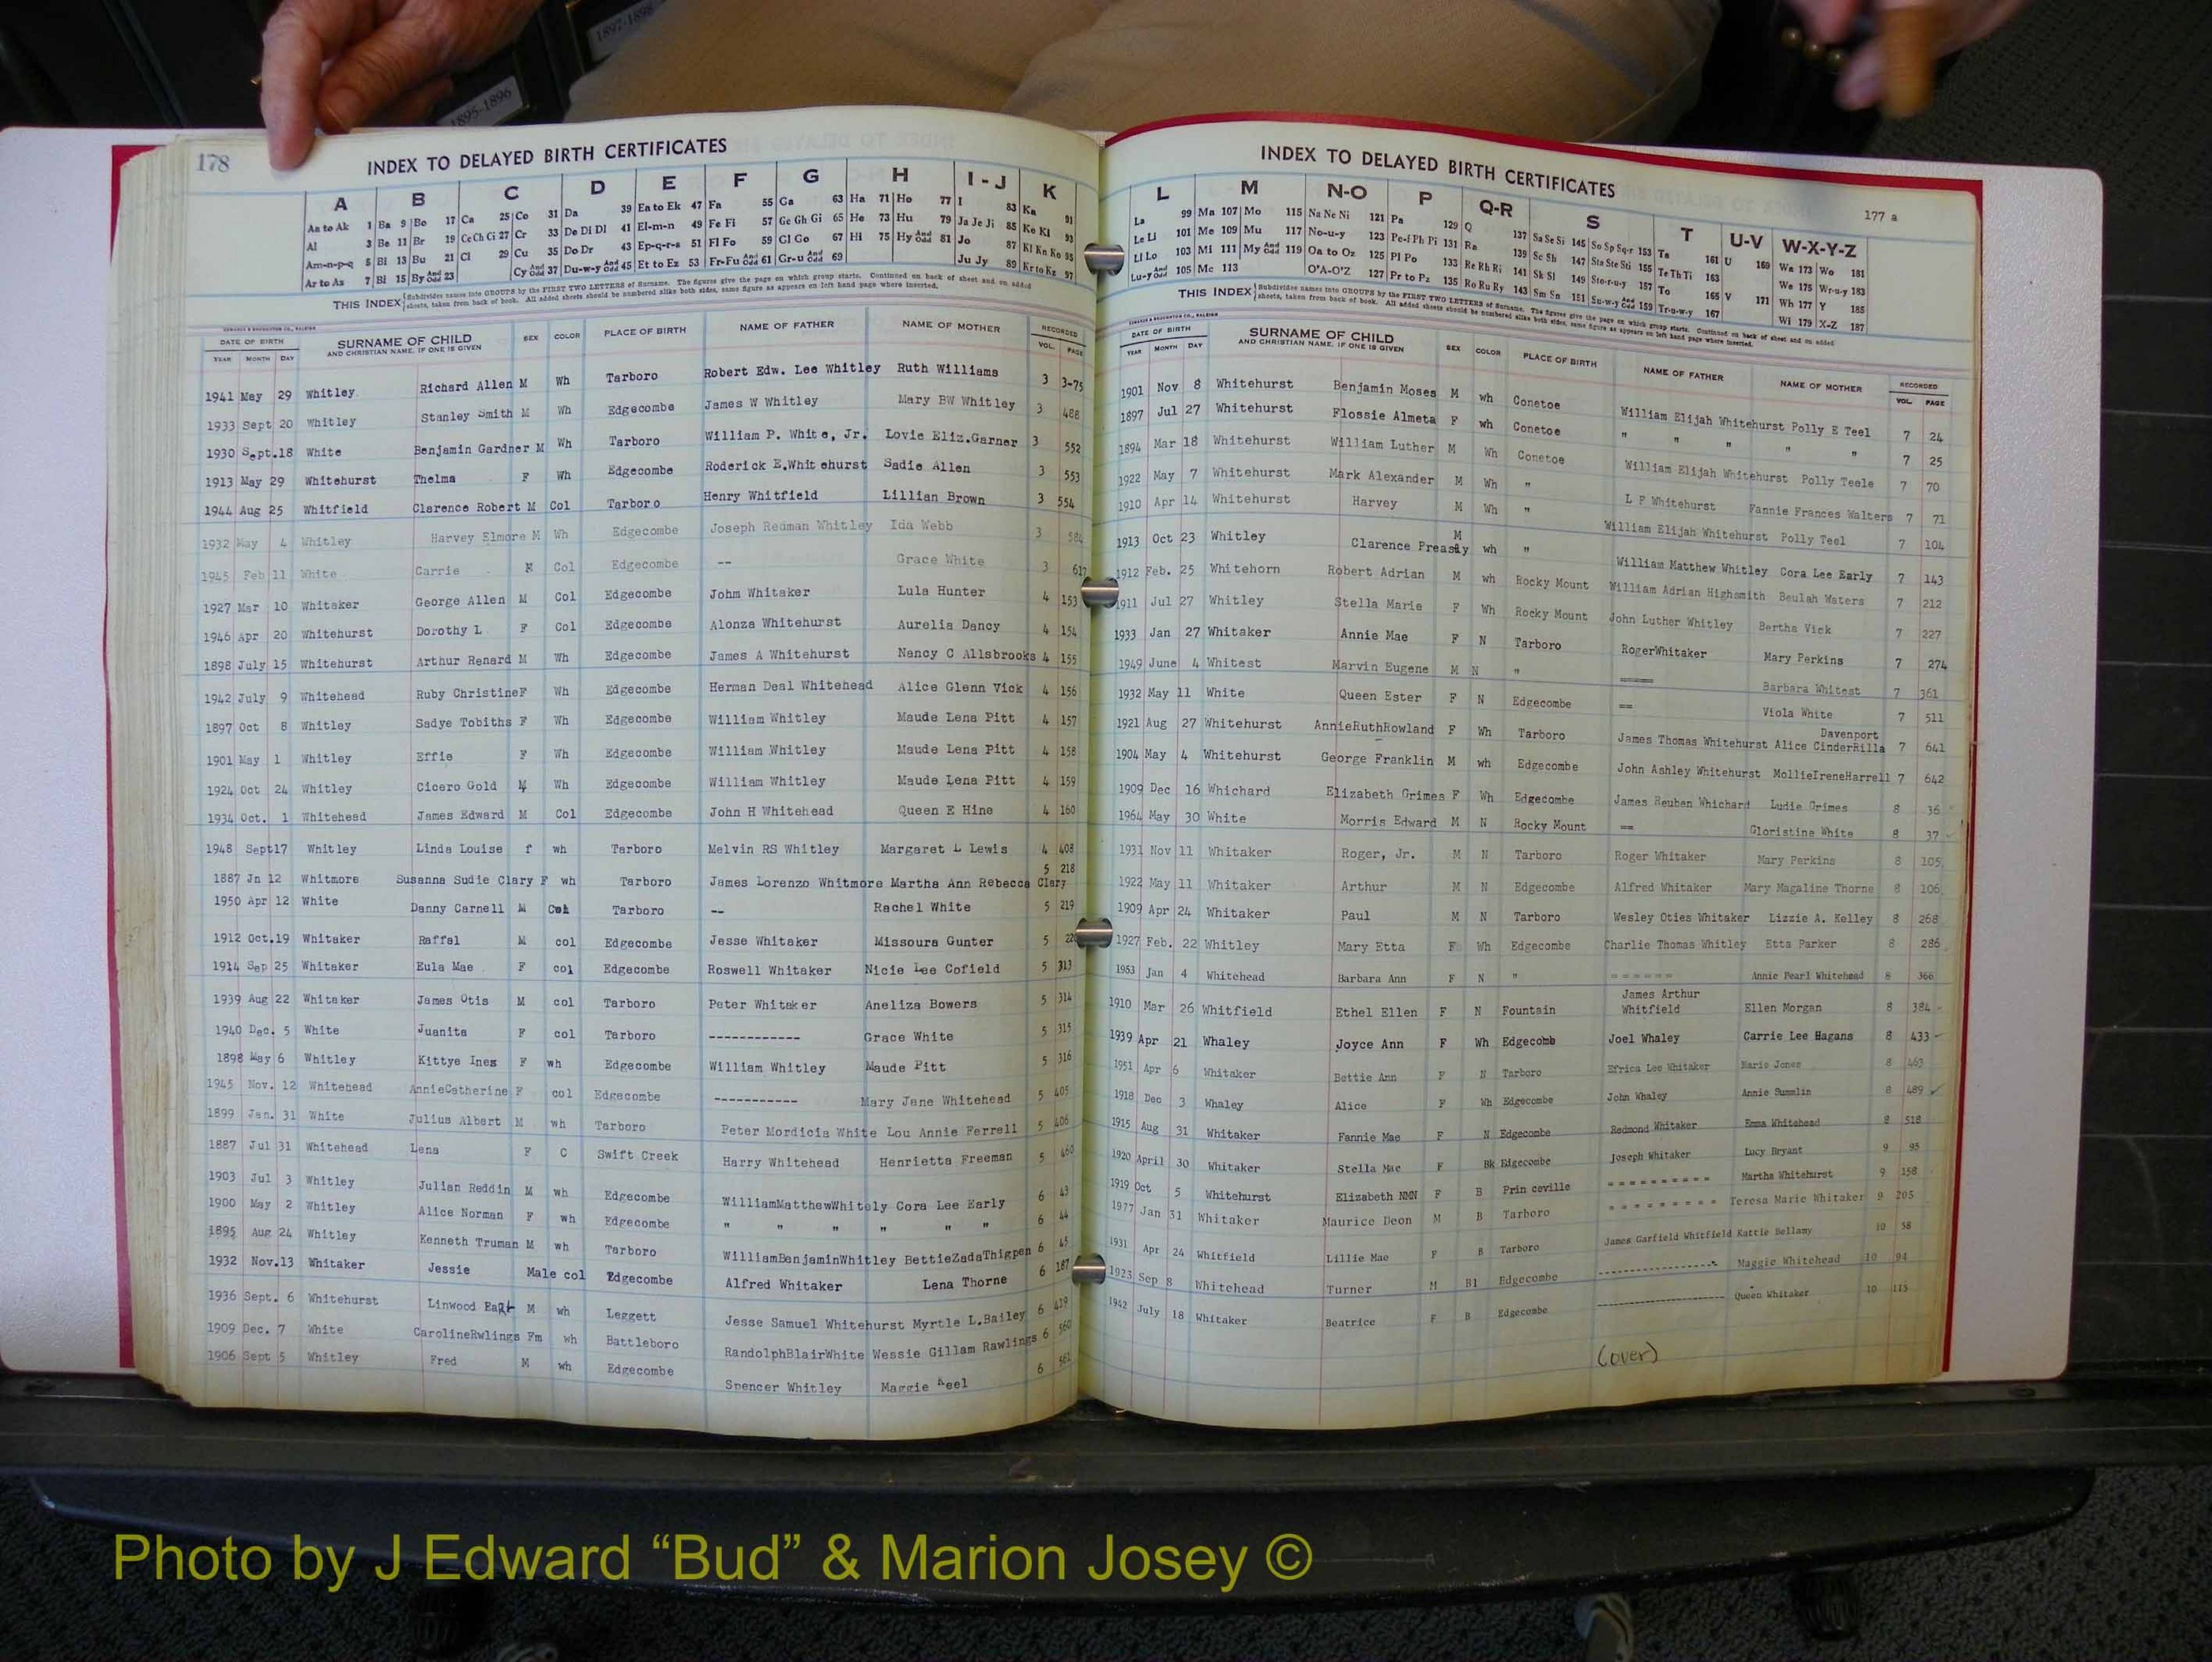 1897-1898
1895-1896
178
INDEX TO DELAYED BIRTH CERTIFICATES
A B C D E F G H I - J K
Aa to Ak 1 Ba 9 Bo 17 Ca 25 Co 31 Da 39 Ea to Ek 47 Fa 55 Ga 63 Ha 71 Ho 77 I 83 Ka 91
Al 3 Be 11 Br 19 Ce Ch Ci 27 Cr 33 De Di Dl 41 El-m-n 49 Fe Fi 57 Ge Gh Gi 65 He 73 Hu 79 Ja Je Ji 85 Ke Ki 93
Am-n-p-q 5 Bi 13 Bu 21 Cl 29 Cu 35 Do Dr 43 Ep-q-r-s 51 Fl Fo 59 Gl Go 67 Hi 75 Hy And Odd 81 Jo 87 Kl Kn Ko 95
Ar to Az 7 Bl 15 By And Odd 23 Cy And Odd 37 Du-w-y And Odd 45 Et to Ez 53 Fr-Fu And Odd 61 Gr-u And Odd 69 Ju Jy 89 Kr to Kz 97
THIS INDEX Subdivides names into GROUPS by the FIRST TWO LETTERS of Surname. The figures give the page on which group starts. Continued on back of sheet and on added
sheets, taken from back of book. All added sheets should be numbered alike both sides, same figure as appears on left hand page where inserted.
EDWARDS & BROUGHTON CO., RALEIGH
DATE OF BIRTH SURNAME OF CHILD AND CHRISTIAN NAME, IF ONE IS GIVEN SEX COLOR PLACE OF BIRTH NAME OF FATHER NAME OF MOTHER RECORDED
YEAR MONTH DAY VOL. PAGE
1941 May 29 Whitley Richard Allen M Wh Tarboro Robert Edw. Lee Whitley Ruth Williams 3 3-75
1933 Sept 20 Whitley Stanley Smith M Wh Edgecombe James W Whitley Mary BW Whitley 3 488
1930 Sept.18 White Benjamin Gardner M Wh Tarboro William P. White, Jr. Lovie Eliz.Garner 3 552
1913 May 29 Whitehurst Thelma F Wh Edgecombe Roderick E.Whitehurst Sadie Allen 3 553
1944 Aug 25 Whitfield Clarence Robert M Col Tarboro Henry Whitfield Lillian Brown 3 554
1932 May 4 Whitley Harvey Elmore M Wh Edgecombe Joseph Redman Whitley Ida Webb 3 584
1945 Feb 11 White Carrie Col Edgecombe -- Grace White 3 617
1927 Mar 10 Whitaker George Allen M Col Edgecombe Johm Whitaker Lula Hunter 4 153
1946 Apr 20 Whitehurst Dorothy L F Col Edgecombe Alonza Whitehurst Aurelia Dancy 4 154
1898 July 15 Whitehurst Arthur Renard M Wh Edgecombe James A Whitehurst Nancy C Allsbrooks 4 155
1942 July 9 Whitehead Ruby Christine F Wh Edgecombe Herman Deal Whitehead Alice Glenn Vick 4 156
1897 Oct 8 Whitley Sadye Tobiths F Wh Edgecombe William Whitley Maude Lena Pitt 4 157
1901 May 1 Whitley Effie F Wh Edgecombe William Whitley Maude Lena Pitt 4 158
1924 Oct 24 Whitley Cicero Gold M Wh Edgecombe William Whitley Maude Lena Pitt 4 159
1934 Oct. 1 Whitehead James Edward M Col Edgecombe John H Whitehead Queen E Hine 4 160
1948 Sept17 Whitley Linda Louise f wh Tarboro Melvin RS Whitley Margaret L Lewis 4 408
1887 Jn 12 Whitmore Susanna Sudie Clary F wh Tarboro James Lorenzo Whitmore Martha Ann Rebecca Clary 5 218
1950 Apr 12 White Danny Carnell M Col Tarboro -- Rachel White 5 219
1912 Oct.19 Whitaker Raffal M col Edgecombe Jesse Whitaker Missoura Gunter 5 220
1914 Sep 25 Whitaker Eula Mae F col Edgecombe Roswell Whitaker Nicie Lee Cofield 5 313
1939 Aug 22 Whitaker James Otis M col Tarboro Peter Whitaker Aneliza Bowers 5 314
1940 Dec. 5 White Juanita F col Tarboro ------------ Grace White 5 315
1898 May 6 Whitley Kittye Ines F wh Edgecombe William Whitley Maude Pitt 5 316
1945 Nov. 12 Whitehead AnnieCatherine F col Edgecombe ----------- Mary Jane Whitehead 5 405
1899 Jan. 31 White Julius Albert M wh Tarboro Peter Mordicia White Lou Annie Ferrell 5 406
1887 Jul 31 Whitehead Lena F C Swift Creek Harry Whitehead Henrietta Freeman 5 460
1903 Jul 3 Whitley Julian Reddin M wh Edgecombe WilliamMatthewWhitely Cora Lee Early 6 43
1900 May 2 Whitley Alice Norman F wh Edgecombe " " " " " " 6 44
1895 Aug 24 Whitley Kenneth Truman M wh Tarboro WilliamBenjaminWhitley BettieZadaThigpen 6 45
1932 Nov.13 Whitaker Jessie Male col Edgecombe Alfred Whitaker Lena Thorne 6 187
1936 Sept. 6 Whitehurst Linwood Earl M wh Leggett Jesse Samuel Whitehurst Myrtle L.Bailey 6 429
1909 Dec. 7 White CarolineRwlings Fm wh Battleboro RandolphBlairWhite Wessie Gillam Rawlings 6 560
1906 Sept 5 Whitley Fred M wh Edgecombe Spencer Whitley Maggie Keel 6 561
INDEX TO DELAYED BIRTH CERTIFICATES
177 a
L M N-O P Q-R S T U-V W-X-Y-Z
La 99 Ma 107 Mo 115 Na Ne Ni 121 Pa 129 Q 137 Sa Se Si 145 So Sp Sq-r 153 Ta 161 U 169 Wa 173 Wo 181
Le Li 101 Me 109 Mu 117 No-u-y 123 Pe-f Ph Pi 131 Ra 139 Sc Sh 147 Sta Ste Sti 155 Te Th Ti 163 We 175 Wr-u-y 183
Ll Lo 103 Mi 111 My And Odd 119 Oa to Oz 125 Pl Po 133 Re Rh Ri 141 Sk Sl 149 Sto-r-u-y 157 To 165 V 171 Wh 177 Y 185
Lu-y And Odd 105 Mc 113 O'A-O'Z 127 Pr to Pz 135 Ro Ru Ry 143 Sm Sn 151 Su-w-y And Odd 159 Tr-u-w-y 167 Wi 179 X-Z 187
THIS INDEX Subdivides names into GROUPS by the FIRST TWO LETTERS of Surname. The figures give the page on which group starts. Continued on back of sheet and on added
sheets, taken from back of book. All added sheets should be numbered alike both sides, same figure as appears on left hand page where inserted.
EDWARDS & BROUGHTON CO., RALEIGH
DATE OF BIRTH SURNAME OF CHILD AND CHRISTIAN NAME, IF ONE IS GIVEN SEX COLOR PLACE OF BIRTH NAME OF FATHER NAME OF MOTHER RECORDED
YEAR MONTH DAY VOL. PAGE
1901 Nov 8 Whitehurst Benjamin Moses M wh Conetoe William Elijah Whitehurst Polly E Teel 7 24
1897 Jul 27 Whitehurst Flossie Almeta F wh Conetoe " " " " " 7 25
1894 Mar 18 Whitehurst William Luther M Wh Conetoe William Elijah Whitehurst Polly Teele 7 70
1922 May 7 Whitehurst Mark Alexander M Wh " L F Whitehurst Fannie Frances Walters 7 71
1910 Apr 14 Whitehurst Harvey M Wh " William Elijah Whitehurst Polly Teel 7 104
1913 Oct 23 Whitley Clarence Preasly M wh " William Matthew Whitley Cora Lee Early 7 143
1912 Feb. 25 Whitehorn Robert Adrian M wh Rocky Mount William Adrian Highsmith Beulah Waters 7 212
1911 Jul 27 Whitley Stella Marie F Wh Rocky Mount John Luther Whitley Bertha Vick 7 227
1933 Jan 27 Whitaker Annie Mae F N Tarboro RogerWhitaker Mary Perkins 7 274
1949 June 4 Whitest Marvin Eugene M N " ===== Barbara Whitest 7 361
1932 May 11 White Queen Ester F N Edgecombe == Viola White 7 511
1921 Aug 27 Whitehurst AnnieRuthRowland F Wh Tarboro James Thomas Whitehurst Alice CinderRilla Davenport 7 641
1904 May 4 Whitehurst George Franklin M wh Edgecombe John Ashley Whitehurst MollieIreneHarrell 7 642
1909 Dec 16 Whichard Elizabeth Grimes F Wh Edgecombe James Reuben Whichard Ludie Grimes 8 36
1964 May 30 White Morris Edward M N Rocky Mount == Gloristine White 8 37
1931 Nov 11 Whitaker Roger, Jr. M N Tarboro Roger Whitaker Mary Perkins 8 105
1922 May 11 Whitaker Arthur M N Edgecombe Alfred Whitaker Mary Magaline Thorne 8 106
1909 Apr 24 Whitaker Paul M N Tarboro Wesley Oties Whitaker Lizzie A. Kelley 8 268
1927 Feb. 22 Whitley Mary Etta F Wh Edgecombe Charlie Thomas Whitley Etta Parker 8 286
1953 Jan 4 Whitehead Barbara Ann F N " ====== Annie Pearl Whitehead 8 366
1910 Mar 26 Whitfield Ethel Ellen F N Fountain James Arthur Whitfield Ellen Morgan 8 384
1939 Apr 21 Whaley Joyce Ann F Wh Edgecomb Joel Whaley Carrie Lee Hagans 8 433
1951 Apr 6 Whitaker Bettie Ann F N Tarboro Efrica Lee Whitaker Marie Jones 8 463
1918 Dec 3 Whaley Alice F Wh Edgecombe John Whaley Annie Summlin 8 489 ✓
1915 Aug 31 Whitaker Fannie Mae F N Edgecombe Redmond Whitaker Emma Whitehead 8 518
1920 April 30 Whitaker Stella Mae F Bk Edgecombe Joseph Whitaker Lucy Bryant 9 95
1919 Oct 5 Whitehurst Elizabeth NMN F B Prin ceville ========== Martha Whitehurst 9 158
1977 Jan 31 Whitaker Maurice Deon M B Tarboro ========== Teresa Marie Whitaker 9 205
1931 Apr 24 Whitfield Lillie Mae F B Tarboro James Garfield Whitfield Kattie Bellamy 10 58
1923 Sep 8 Whitehead Turner M Bl Edgecombe ---------------- Maggie Whitehead 10 94
1942 July 18 Whitaker Beatrice F B Edgecombe ---------------- Queen Whitaker 10 115
(over)
Photo by J Edward “Bud” & Marion Josey ©